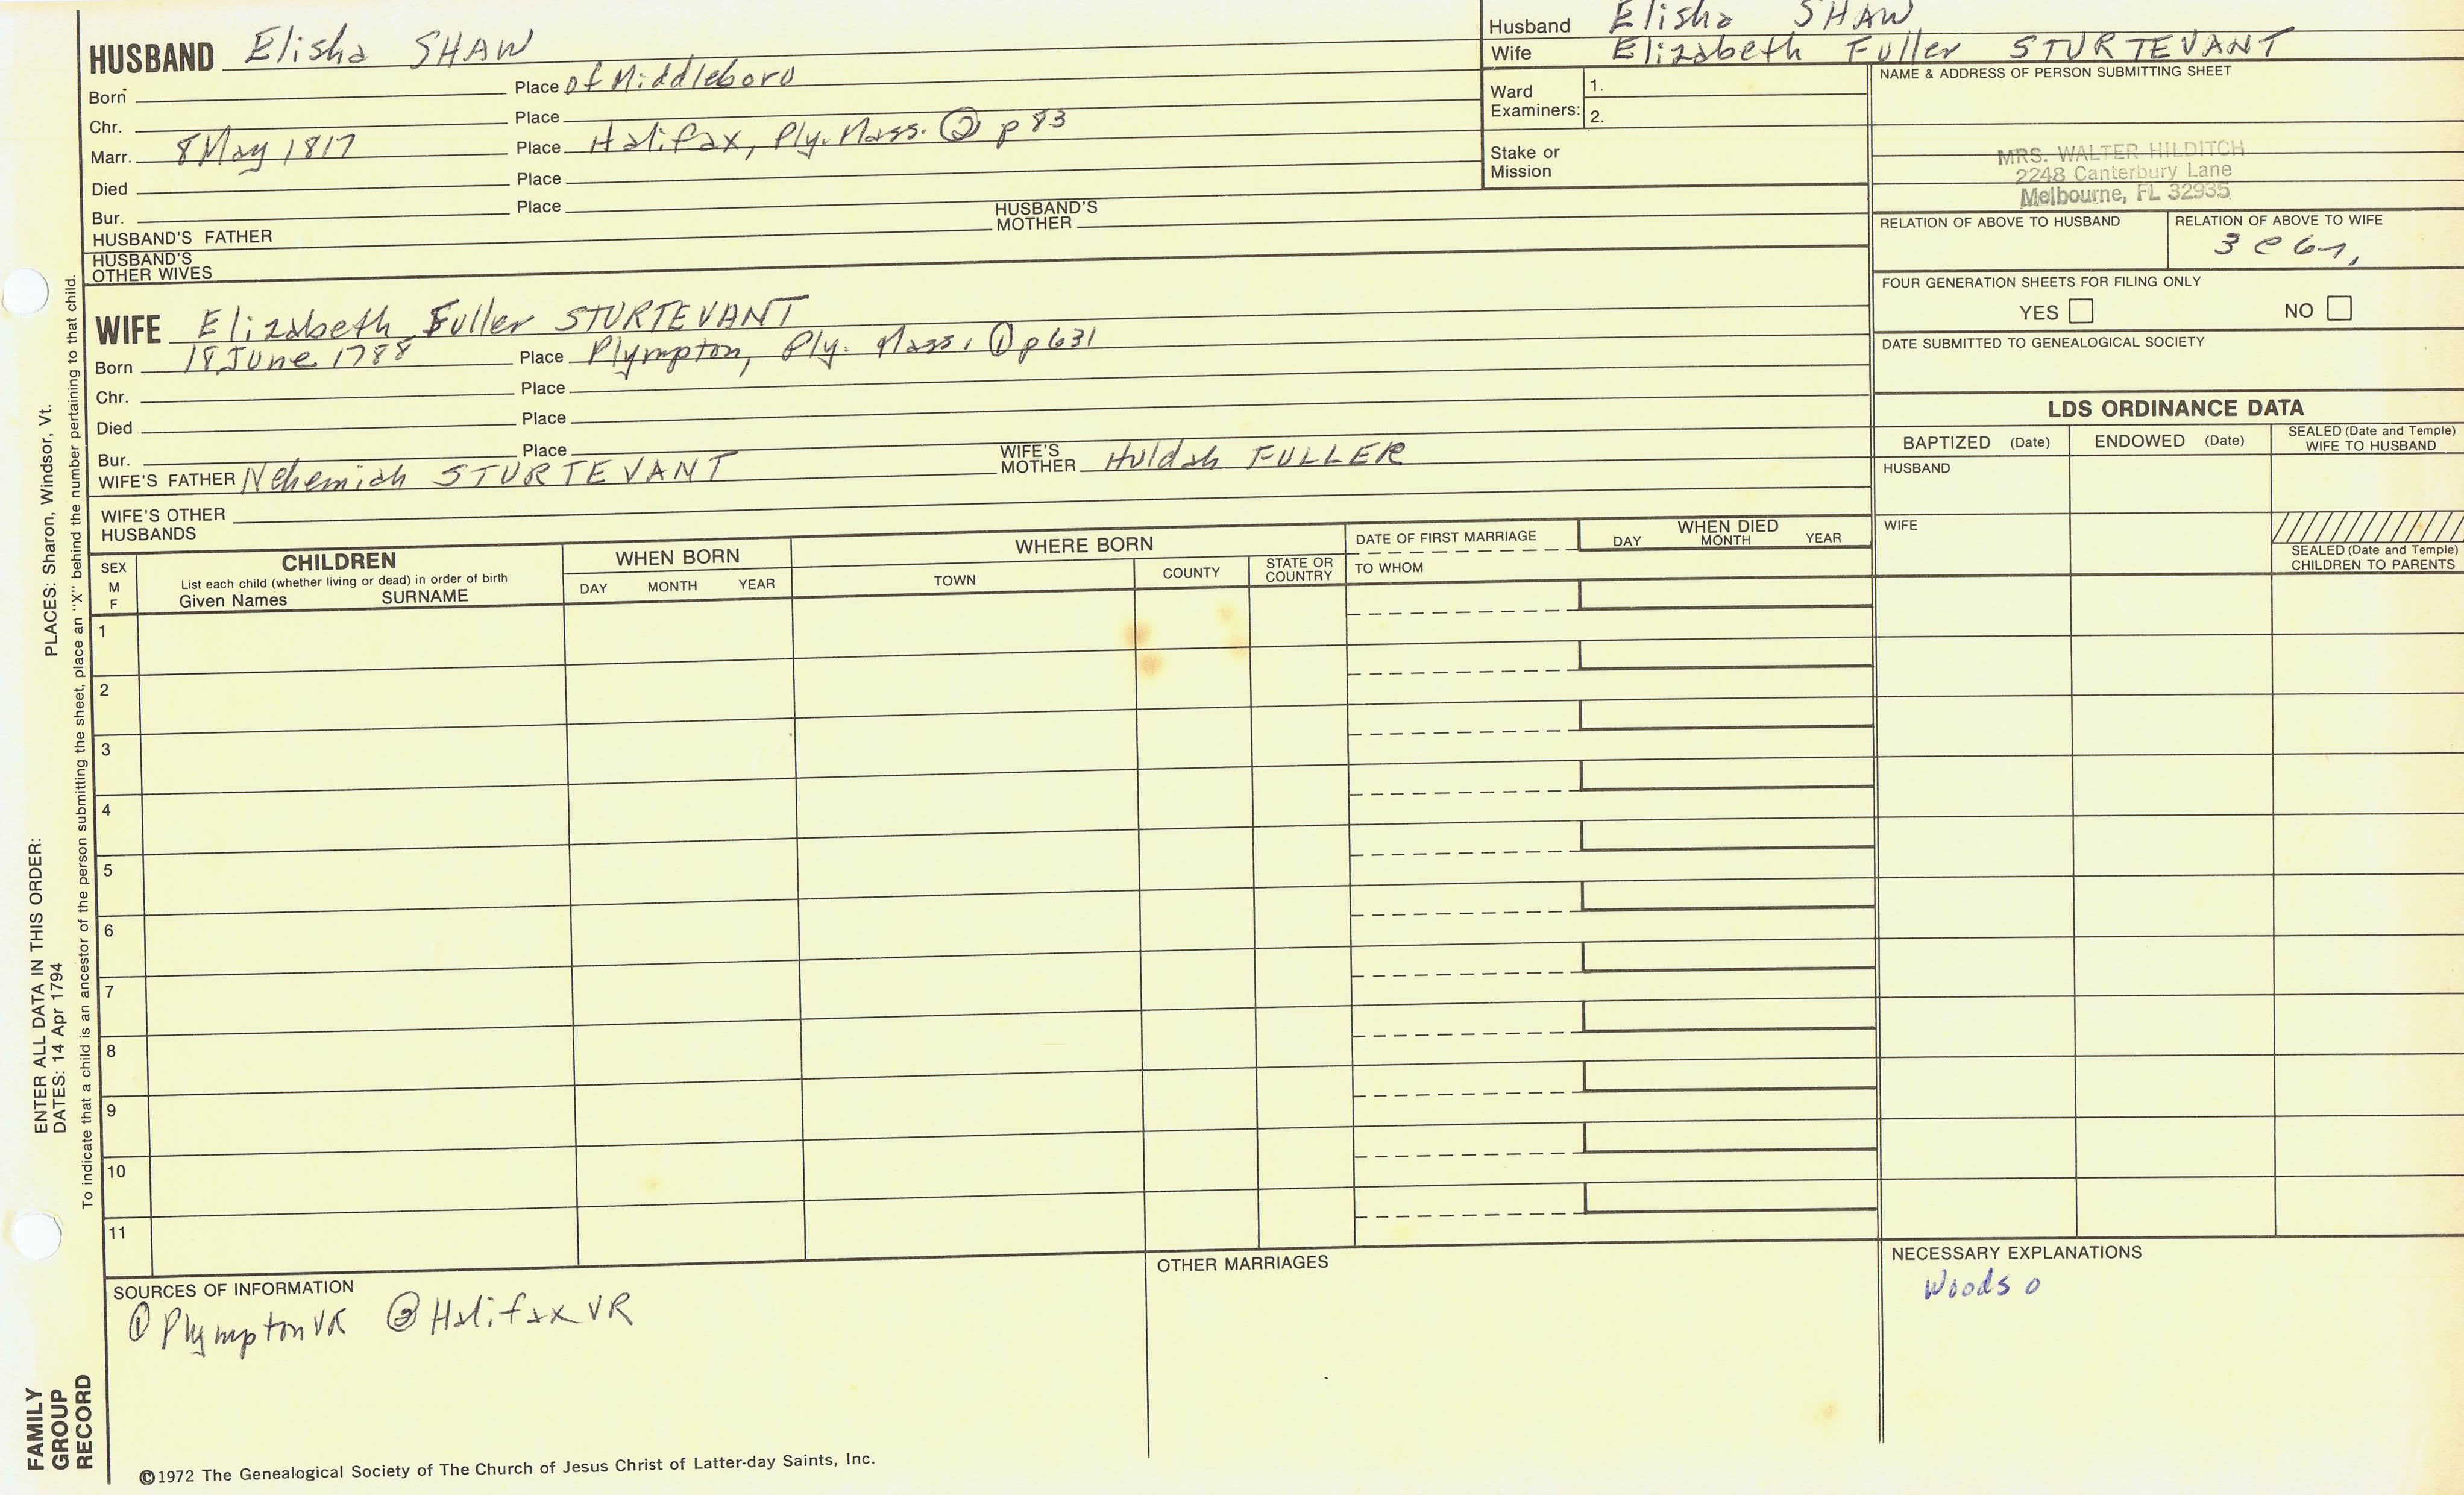 HUSBAND Elisha SHAW
Born Place of Middleboro
Chr. Place
Marr. 8 May 1817 Place Halifax, Ply. Mass. ② p 83
Died Place
Bur. Place
HUSBAND'S FATHER HUSBAND'S MOTHER
HUSBAND'S OTHER WIVES
WIFE Elizabeth Fuller STURTEVANT
Born 18 June 1788 Place Plympton, Ply. Mass. ① p 631
Chr. Place
Died Place
Bur. Place
WIFE'S FATHER Nehemiah STURTEVANT WIFE'S MOTHER Huldah FULLER
WIFE'S OTHER HUSBANDS
Husband Elisha SHAW
Wife Elizabeth Fuller STURTEVANT
Ward Examiners: 1.
2.
Stake or Mission
NAME & ADDRESS OF PERSON SUBMITTING SHEET
MRS. WALTER HILDITCH
2248 Canterbury Lane
Melbourne, FL 32935
RELATION OF ABOVE TO HUSBAND RELATION OF ABOVE TO WIFE
FOUR GENERATION SHEETS FOR FILING ONLY
YES NO
DATE SUBMITTED TO GENEALOGICAL SOCIETY
LDS ORDINANCE DATA
BAPTIZED (Date) ENDOWED (Date) SEALED (Date and Temple) WIFE TO HUSBAND
HUSBAND
WIFE
SEALED (Date and Temple) CHILDREN TO PARENTS
SEX M F
CHILDREN
List each child (whether living or dead) in order of birth
Given Names SURNAME
WHEN BORN
DAY MONTH YEAR
WHERE BORN
TOWN COUNTY STATE OR COUNTRY
DATE OF FIRST MARRIAGE
TO WHOM
WHEN DIED
DAY MONTH YEAR
1
2
3
4
5
6
7
8
9
10
11
SOURCES OF INFORMATION
① Plympton VR ② Halifax VR
OTHER MARRIAGES
NECESSARY EXPLANATIONS
Woods o
©1972 The Genealogical Society of The Church of Jesus Christ of Latter-day Saints, Inc.
FAMILY GROUP RECORD
ENTER ALL DATA IN THIS ORDER:
DATES: 14 Apr 1794 PLACES: Sharon, Windsor, Vt.
To indicate that a child is an ancestor of the person submitting the sheet, place an "X" behind the number pertaining to that child.